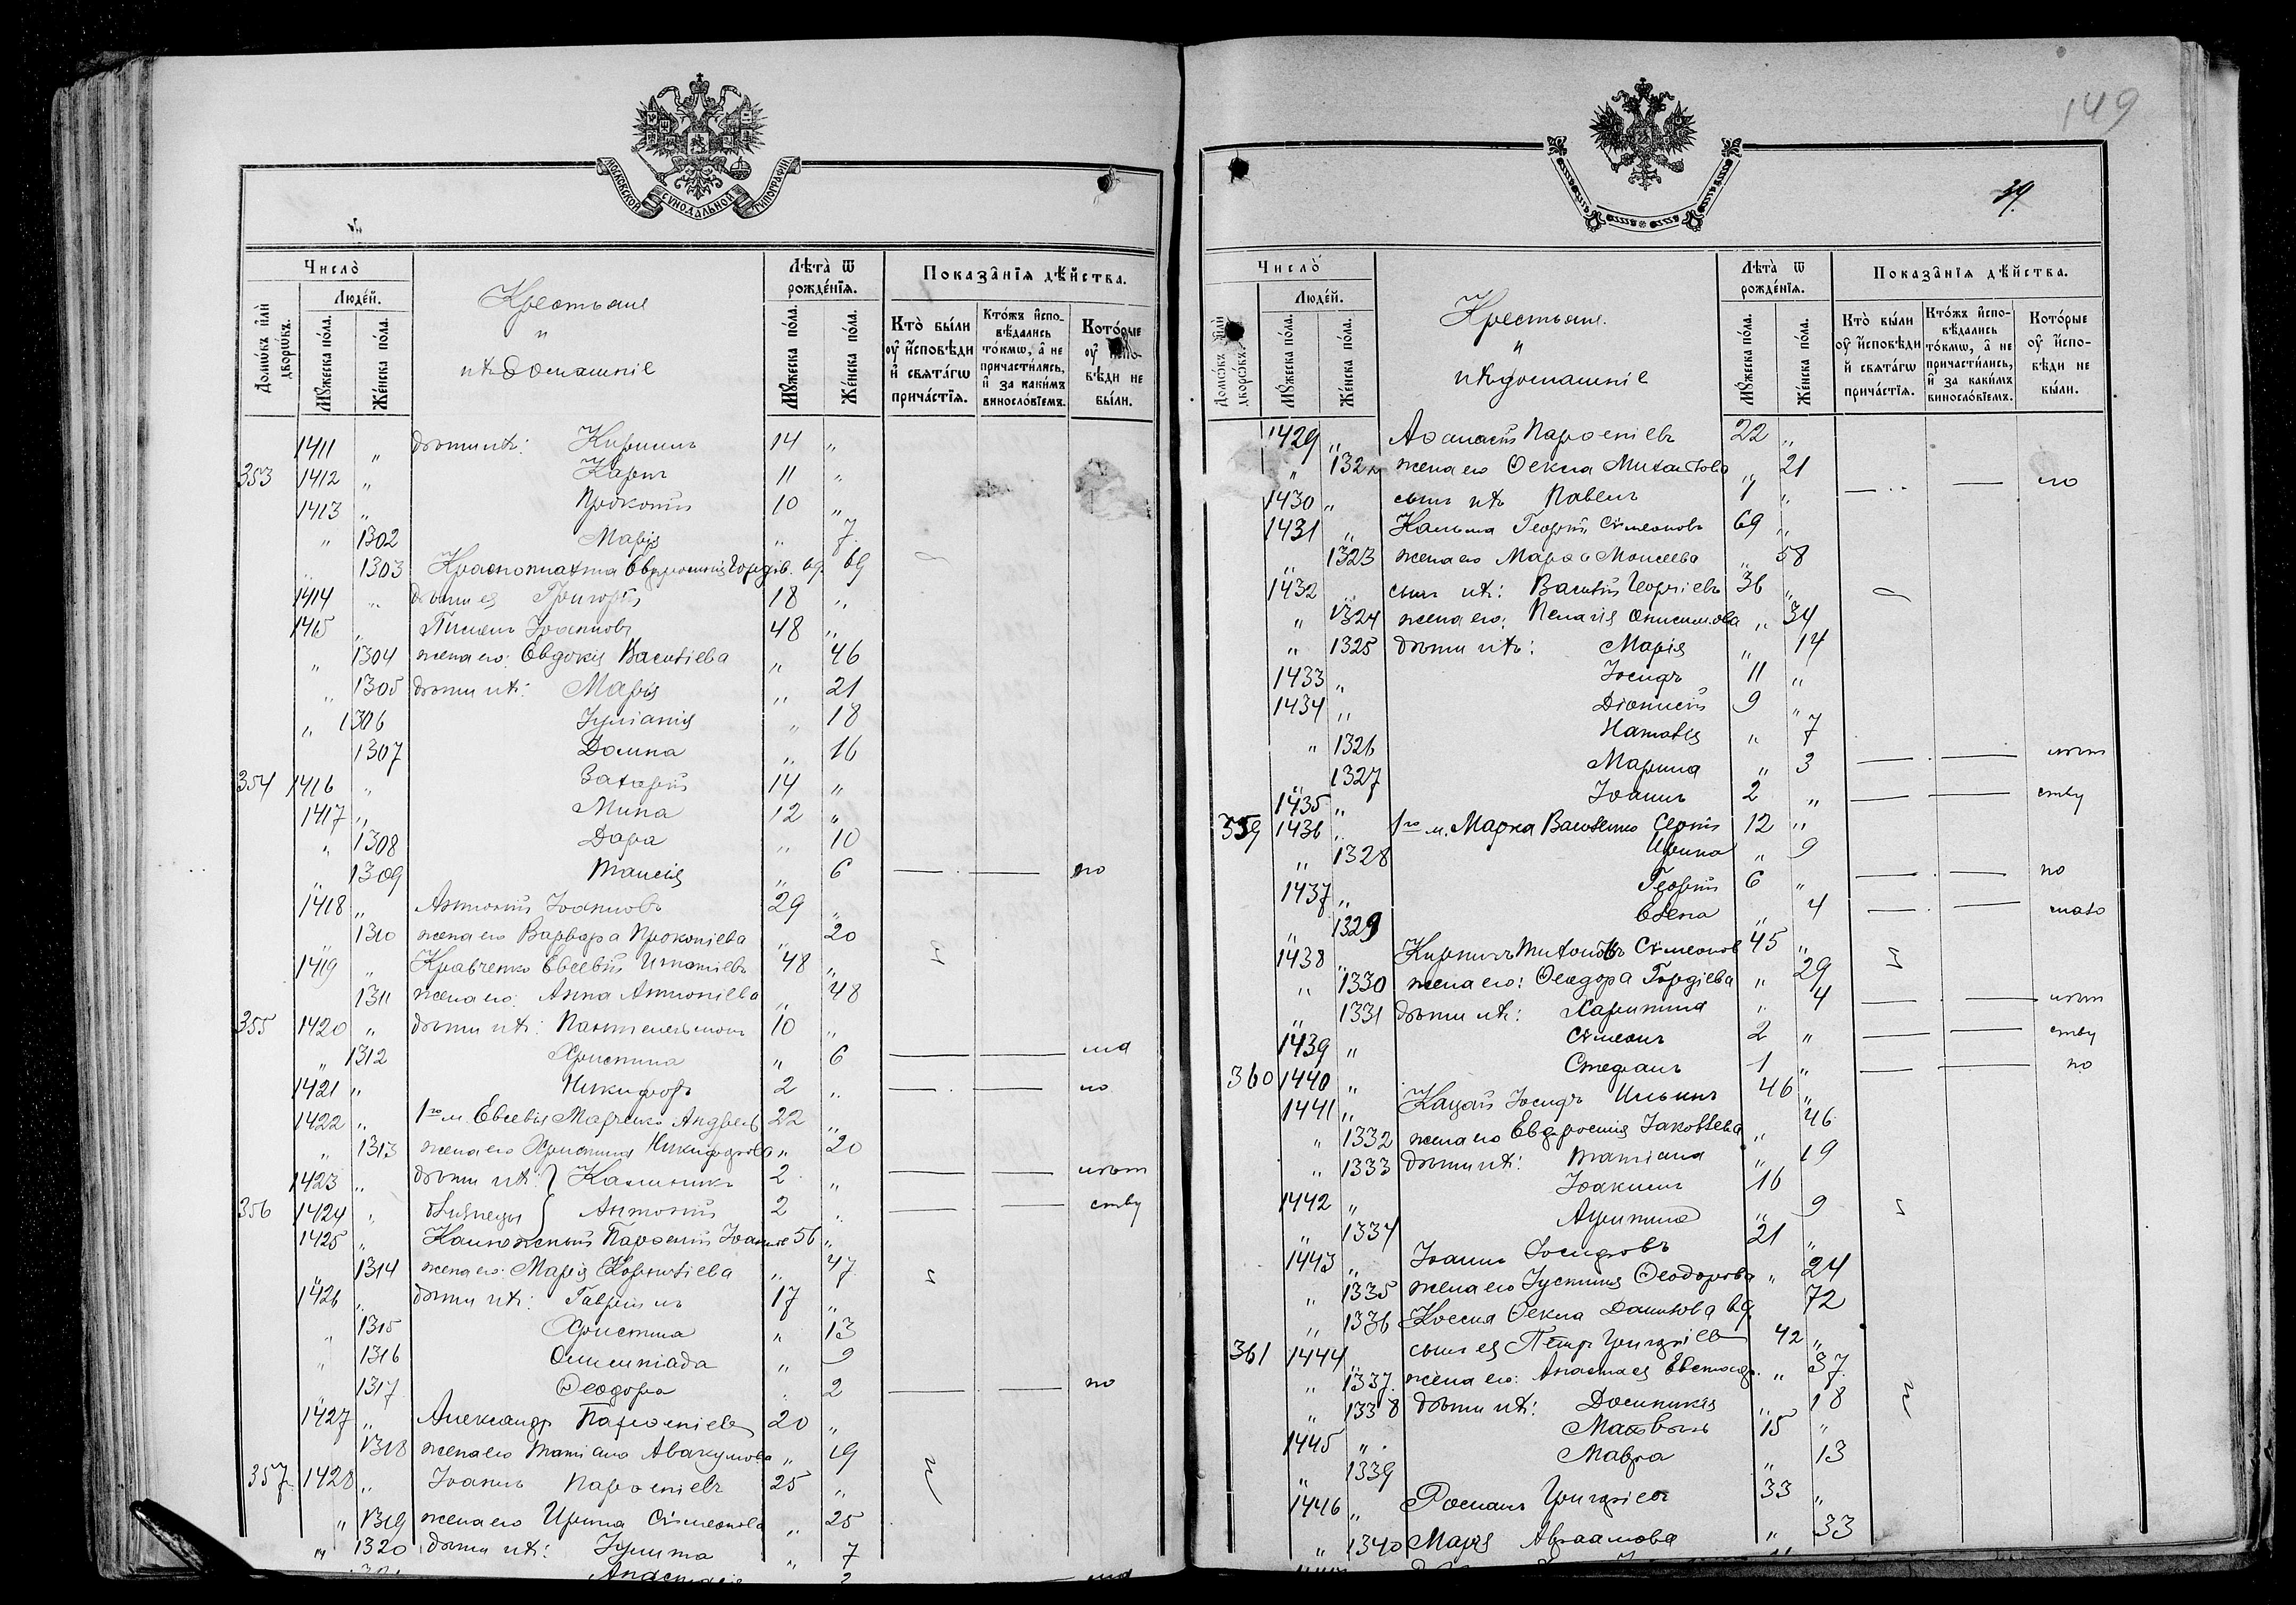 МОСКОВСКОЙ СѴНОДАЛЬНОЙ ТИПОГРАФІИ
Число̀
Людей.
Домѡ́въ и҆лѝ дворѡ́въ.
Мꙋ́жеска по́ла.
Же́нска по́ла.
Крестьяне
и
ихъ домашніе
Лѣ́та ѿ рожде́нїѧ.
Мꙋ́жеска по́ла.
Же́нска по́ла.
Показа̑нїѧ дѣ́йства.
Кто̀ бы́ли оу҆ и҆сповѣ́ди и҆ свѧта́гѡ прича́стїѧ.
Кто́жъ и҆сповѣ́дались то́кмѡ, а҆ не причасти́лись, и҆ за каки́мъ виносло́вїемъ.
Кото́рые оу҆ и҆сповѣ́ди не бы́ли.
1411 „ дѣти ихъ: Кириллъ 14 „
353 1412 „ Карпъ 11 „
1413 „ Прокопій 10 „
„ 1302 Марія „ 7
„ 1303 Евфросинія вд. 69
1414 „ Григорій 18 „
1415 „ Пименъ Іоанновъ 48 „
„ 1304 жена его: Евдокія Василіева „ 46
„ 1305 дѣти ихъ: Марія „ 21
„ 1306 Іуліанія „ 18
1307 Домна „ 16
354 1416 „ Захарій 14 „
1417 „ Мина 12 „
„ 1308 Дарія „ 10
„ 1309 Таисія „ 6 — — по
1418 „ Антоній Іоанновъ 29 „
1310 жена его Варвара Прокопіева „ 20
1419 „ Кравченко Евсевій Игнатіевъ 48 „
1311 жена его: Анна Антоніева „ 48
355 1420 „ дѣти ихъ: Пантелеимонъ 10 „
„ 1312 Христина „ 6 — — ма
1421 „ Никифоръ 2 „ — — ло
1422 „ 1го м. Евсевія Марченко Андрей 22 „
„ 1313 жена его Христина Никифорова „ 20
1423 „ дѣти ихъ: Каллиникъ 2 „ — — лѣт
356 1424 „ близнецы Антоній 2 „ — — ству
1425 „ Калюжный Парѳеній Іоаннов 56 „
„ 1314 жена его: Марія Корниліева „ 47
1426 „ дѣти ихъ: Гавріилъ 17 „
„ 1315 Христина „ 13
„ 1316 Олимпіада „ 9
„ 1317 Ѳеодора „ 2 — — по
1427 „ Александръ Парѳеніевъ 20 „
1318 жена его Татіана Авакумова „ 19
357 1428 „ Іоаннъ Парѳеніевъ 25 „
„ 1319 жена его Ирина Сѵмеонова „ 25
„ 1320 дѣти ихъ: Іулита „ 7
Анастасія 2 ма
149
39.
Число̀
Людей.
Домѡ́въ и҆лѝ дворѡ́въ.
Мꙋ́жеска по́ла.
Же́нска по́ла.
Крестьяне.
и
ихъ домашніе
Лѣ́та ѿ рожде́нїѧ.
Мꙋ́жеска по́ла.
Же́нска по́ла.
Показа̑нїѧ дѣ́йства.
Кто̀ бы́ли оу҆ и҆сповѣ́ди и҆ свѧта́гѡ прича́стїѧ.
Кто́жъ и҆сповѣ́дались то́кмѡ, а҆ не причасти́лись, и҆ за каки́мъ виносло́вїемъ.
Кото́рые оу҆ и҆сповѣ́ди не бы́ли.
1429 „ Аѳанасій Парѳеніевъ 22 „
„ 1322 жена его Ѳекла Михайлова „ 21
1430 „ сынъ ихъ Павелъ 1 „ — — ло
1431 „ Георгій Сѵмеоновъ 69 „
„ 1323 жена его Марѳа Моисеева „ 58
1432 „ сынъ ихъ: Василій Георгіевъ 36 „
„ 1324 жена его: Пелагія Онисимова „ 34
„ 1325 дѣти ихъ: Марія „ 14
1433 „ Іосифъ 11 „
1434 „ Діонисій 9 „
„ 1326 Наталія „ 7
„ 1327 Марина „ 3 — — лѣт
1435 „ Іоаннъ 2 „ — — ству
359 1436 „ 1го м. Марка Василенко Сергій 12 „
„ 1328 Ирина „ 9
1437 „ Георгій 6 „ — — по
„ 1329 Елена „ 4 — — мало
1438 „ Сѵмеонов 45 „
„ 1330 жена его: Ѳеодора Гордіева „ 29
„ 1331 дѣти ихъ: Харитина „ 4 — — лѣт
1439 „ Сѵмеонъ 2 „ — — ству
360 1440 „ Стефанъ 1 „ — — по
1441 „ Кацай Іосифъ Ильинъ 46 „
„ 1332 жена его Евфросинія Іаковлева „ 46
„ 1333 дѣти ихъ: Татіана „ 19
1442 „ Іоакимъ 16
„ 1334 Агрипина „ 9
1443 „ Іоаннъ Іосифовъ 21 „
„ 1335 жена его Іустина Ѳеодорова „ 24
„ 1336 Ѳекла Данилова вд. 72
361 1444 „ сынъ ея Петръ Григоріев 42 „
„ 1337. жена его: Анастасія „ 37
„ 1338 дѣти ихъ: Домникія „ 18
1445 „ Матѳей 15 „
„ 1339 Мавра „ 13
1446 „ Романъ Григоріев 33 „
„ 1340 Марія Авраамова „ 33